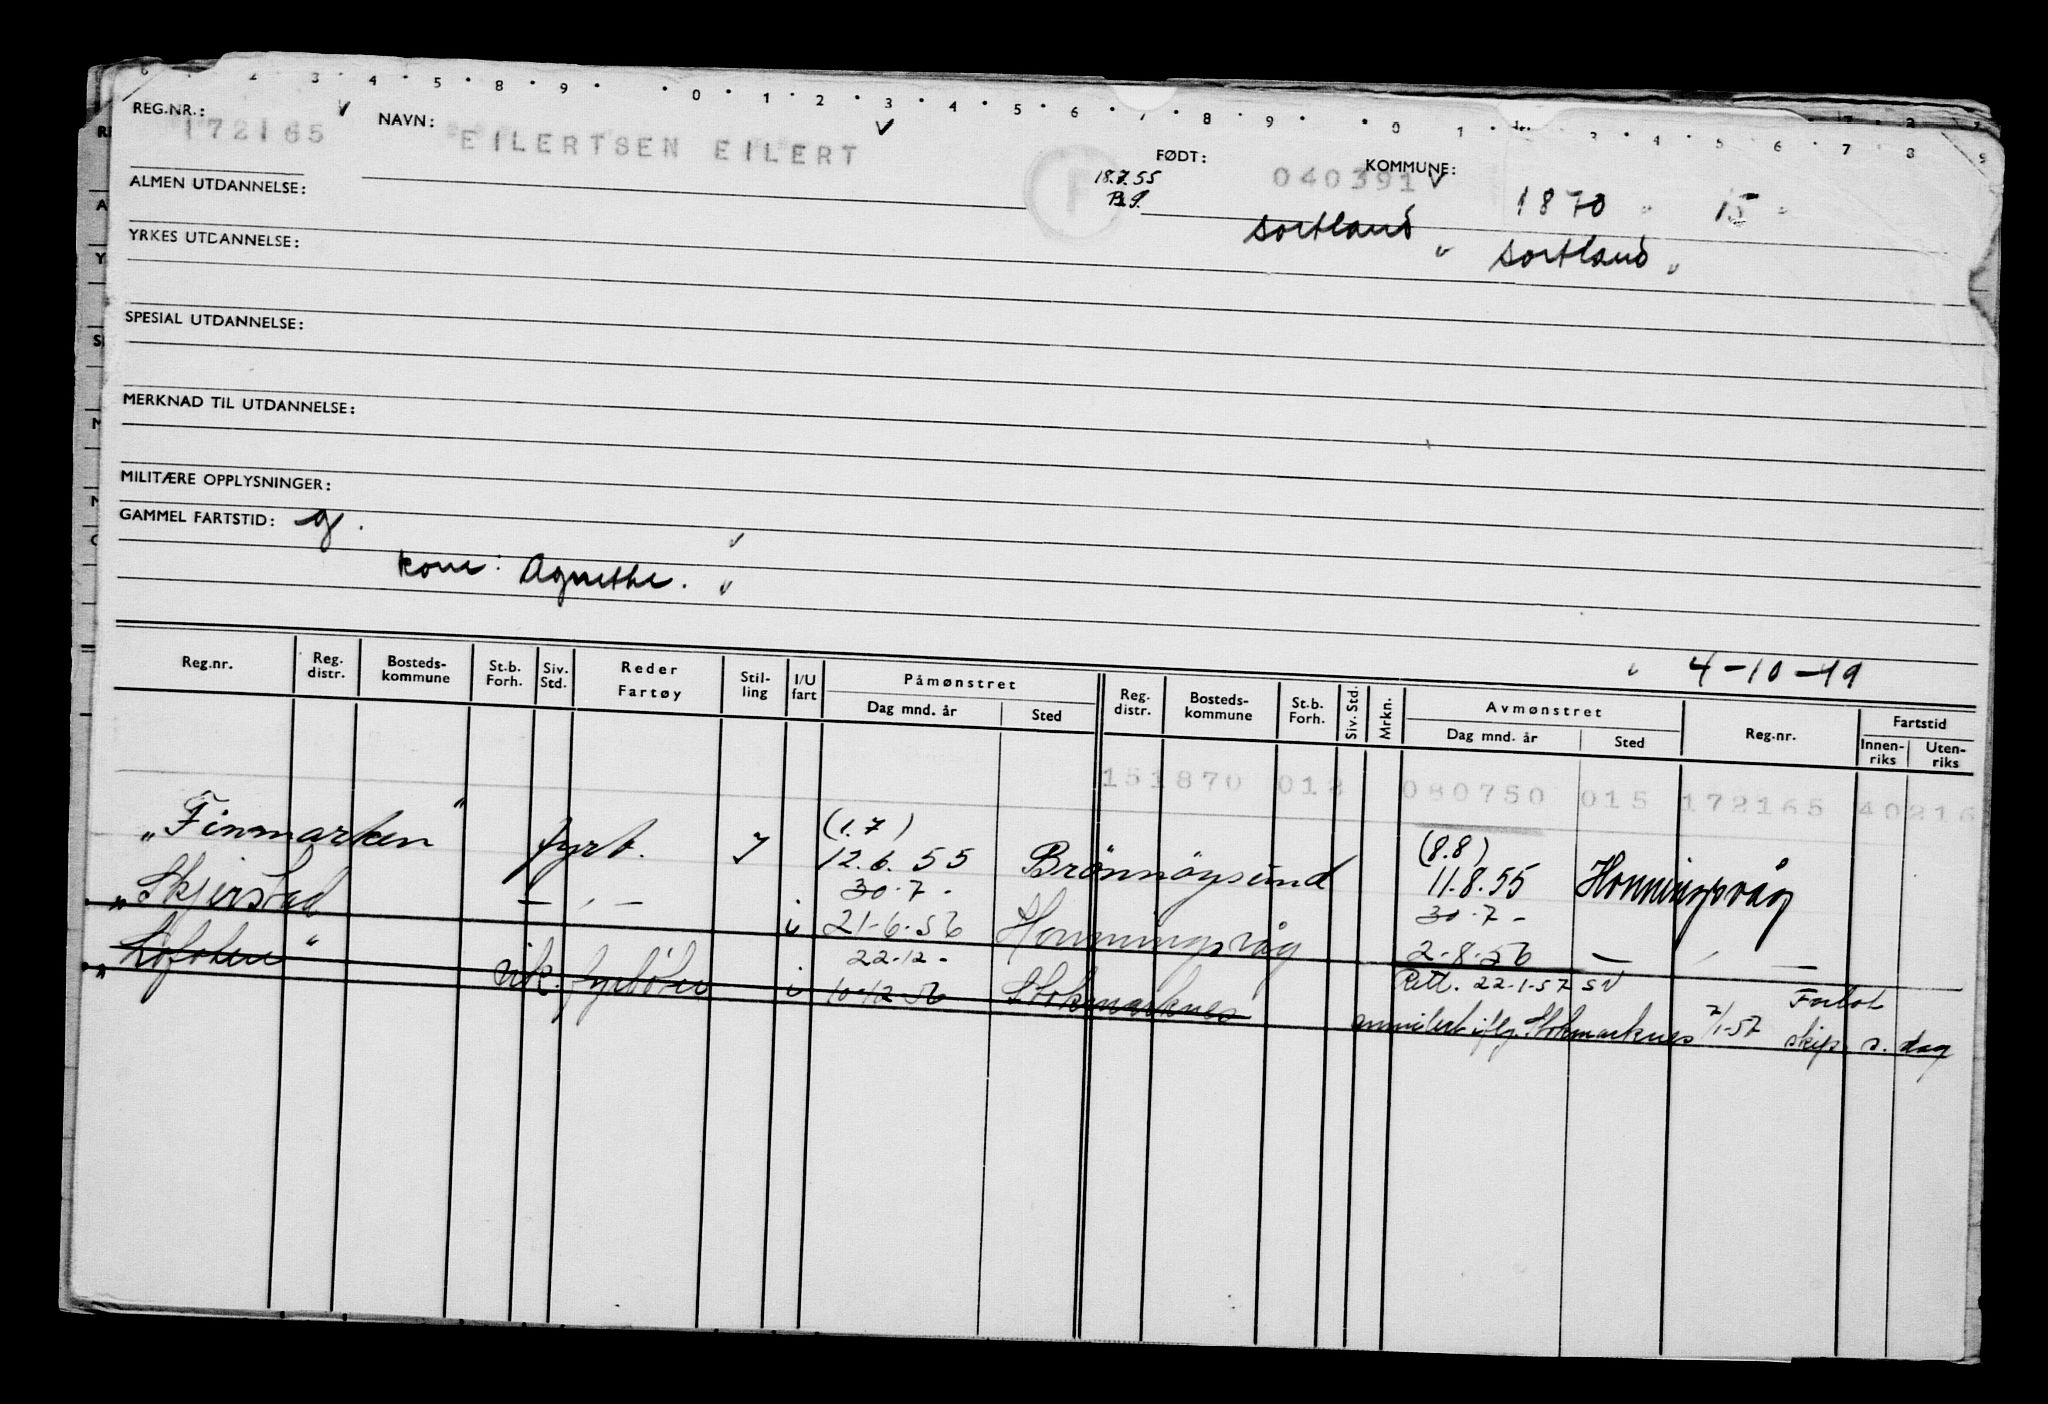 REG.NR.: 172165 NAVN: EILERTSEN EILERT FØDT: 040391 KOMMUNE:
18.7.55
1870 15
ALMEN UTDANNELSE:
sortland sortland
YRKES UTDANNELSE:
SPESIAL UTDANNELSE:
MERKNAD TIL UTDANNELSE:
MILITÆRE OPPLYSNINGER:
GAMMEL FARTSTID:
kone: Agnethe.
4-10-49
Reg.nr. Reg. distr. Bosteds-kommune St.b. Forh. Siv. Std. Reder Fartøy Stil-ling I/U fart Påmønstret Dag mnd. år Sted Reg. distr. Bosteds-kommune St.b. Forh. Siv. Std. Mrkn. Avmønstret Dag mnd. år Sted Reg.nr. Fartstid Innen-riks Uten-riks
151870 012 080750 015 172165 40216
(1.7) (8.8)
"Finmarken" fyrb. 12.6.55 Brønnøysund 11.8.55 Honningsvåg
30.7- 30.7-
"Skjerstad — " — i 21-6-56 Honningsvåg 2-8-56 — " —
22-12-
"Lofoten" vik. fyrbøter i 10-12-56 Stokmarknes
Rett. 22-1-57 SV Forlot
Stokmarknes 7/1-57 skip s. dag